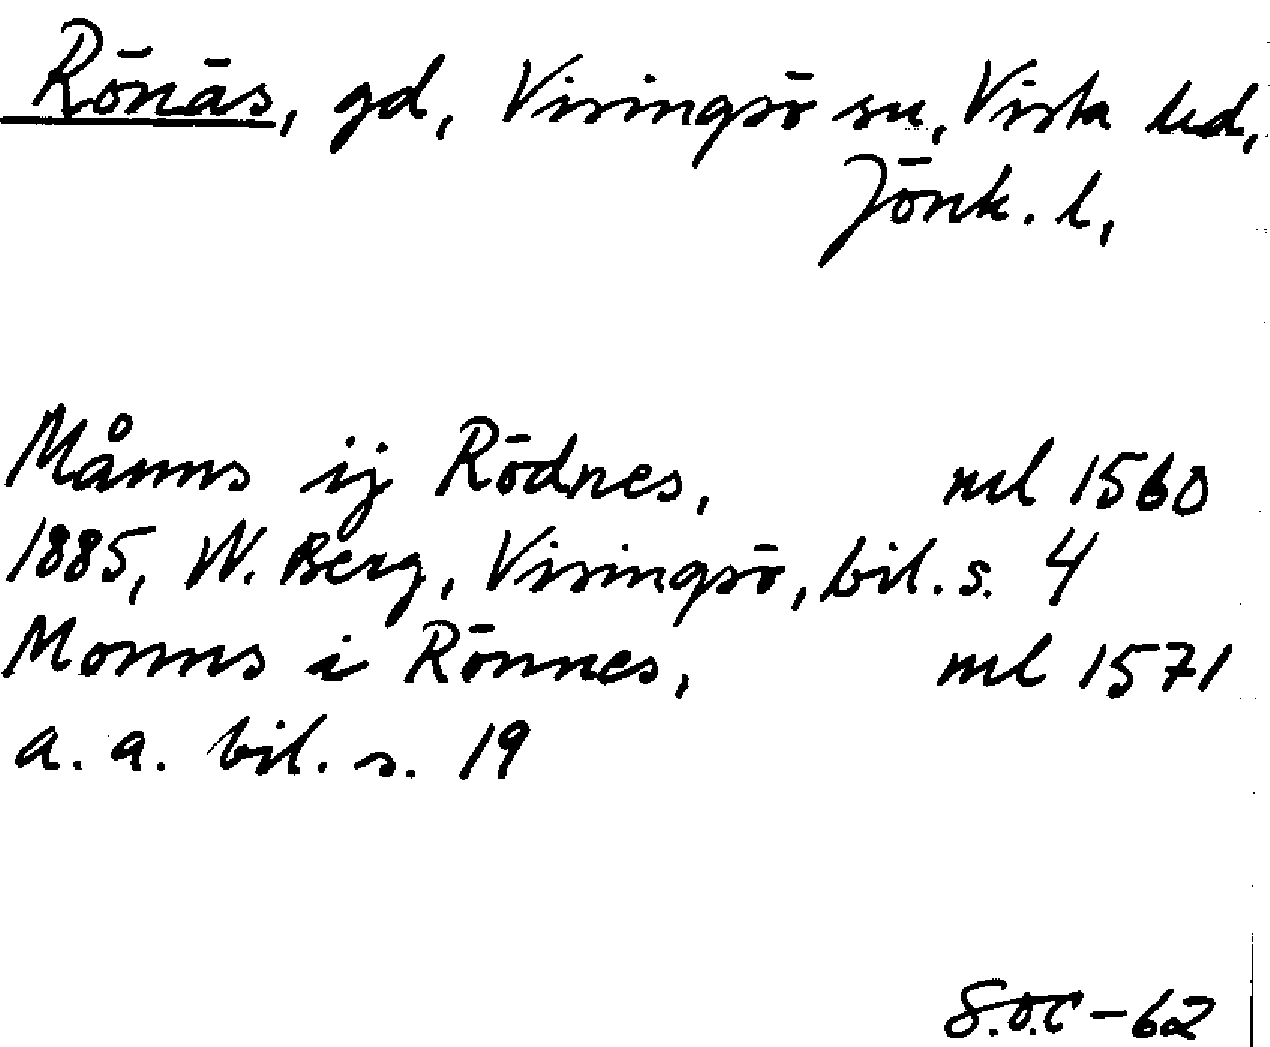 Rönäs, gd, Visingsö sn, Vista hd,
Jönk. l,
Månns ij Rödnes, ml 1560
1885, W. Berg, Visingsö, bil. s. 4
Monns i Rönnes, ml 1571
a. a. bil. s. 19
S.O.C-62